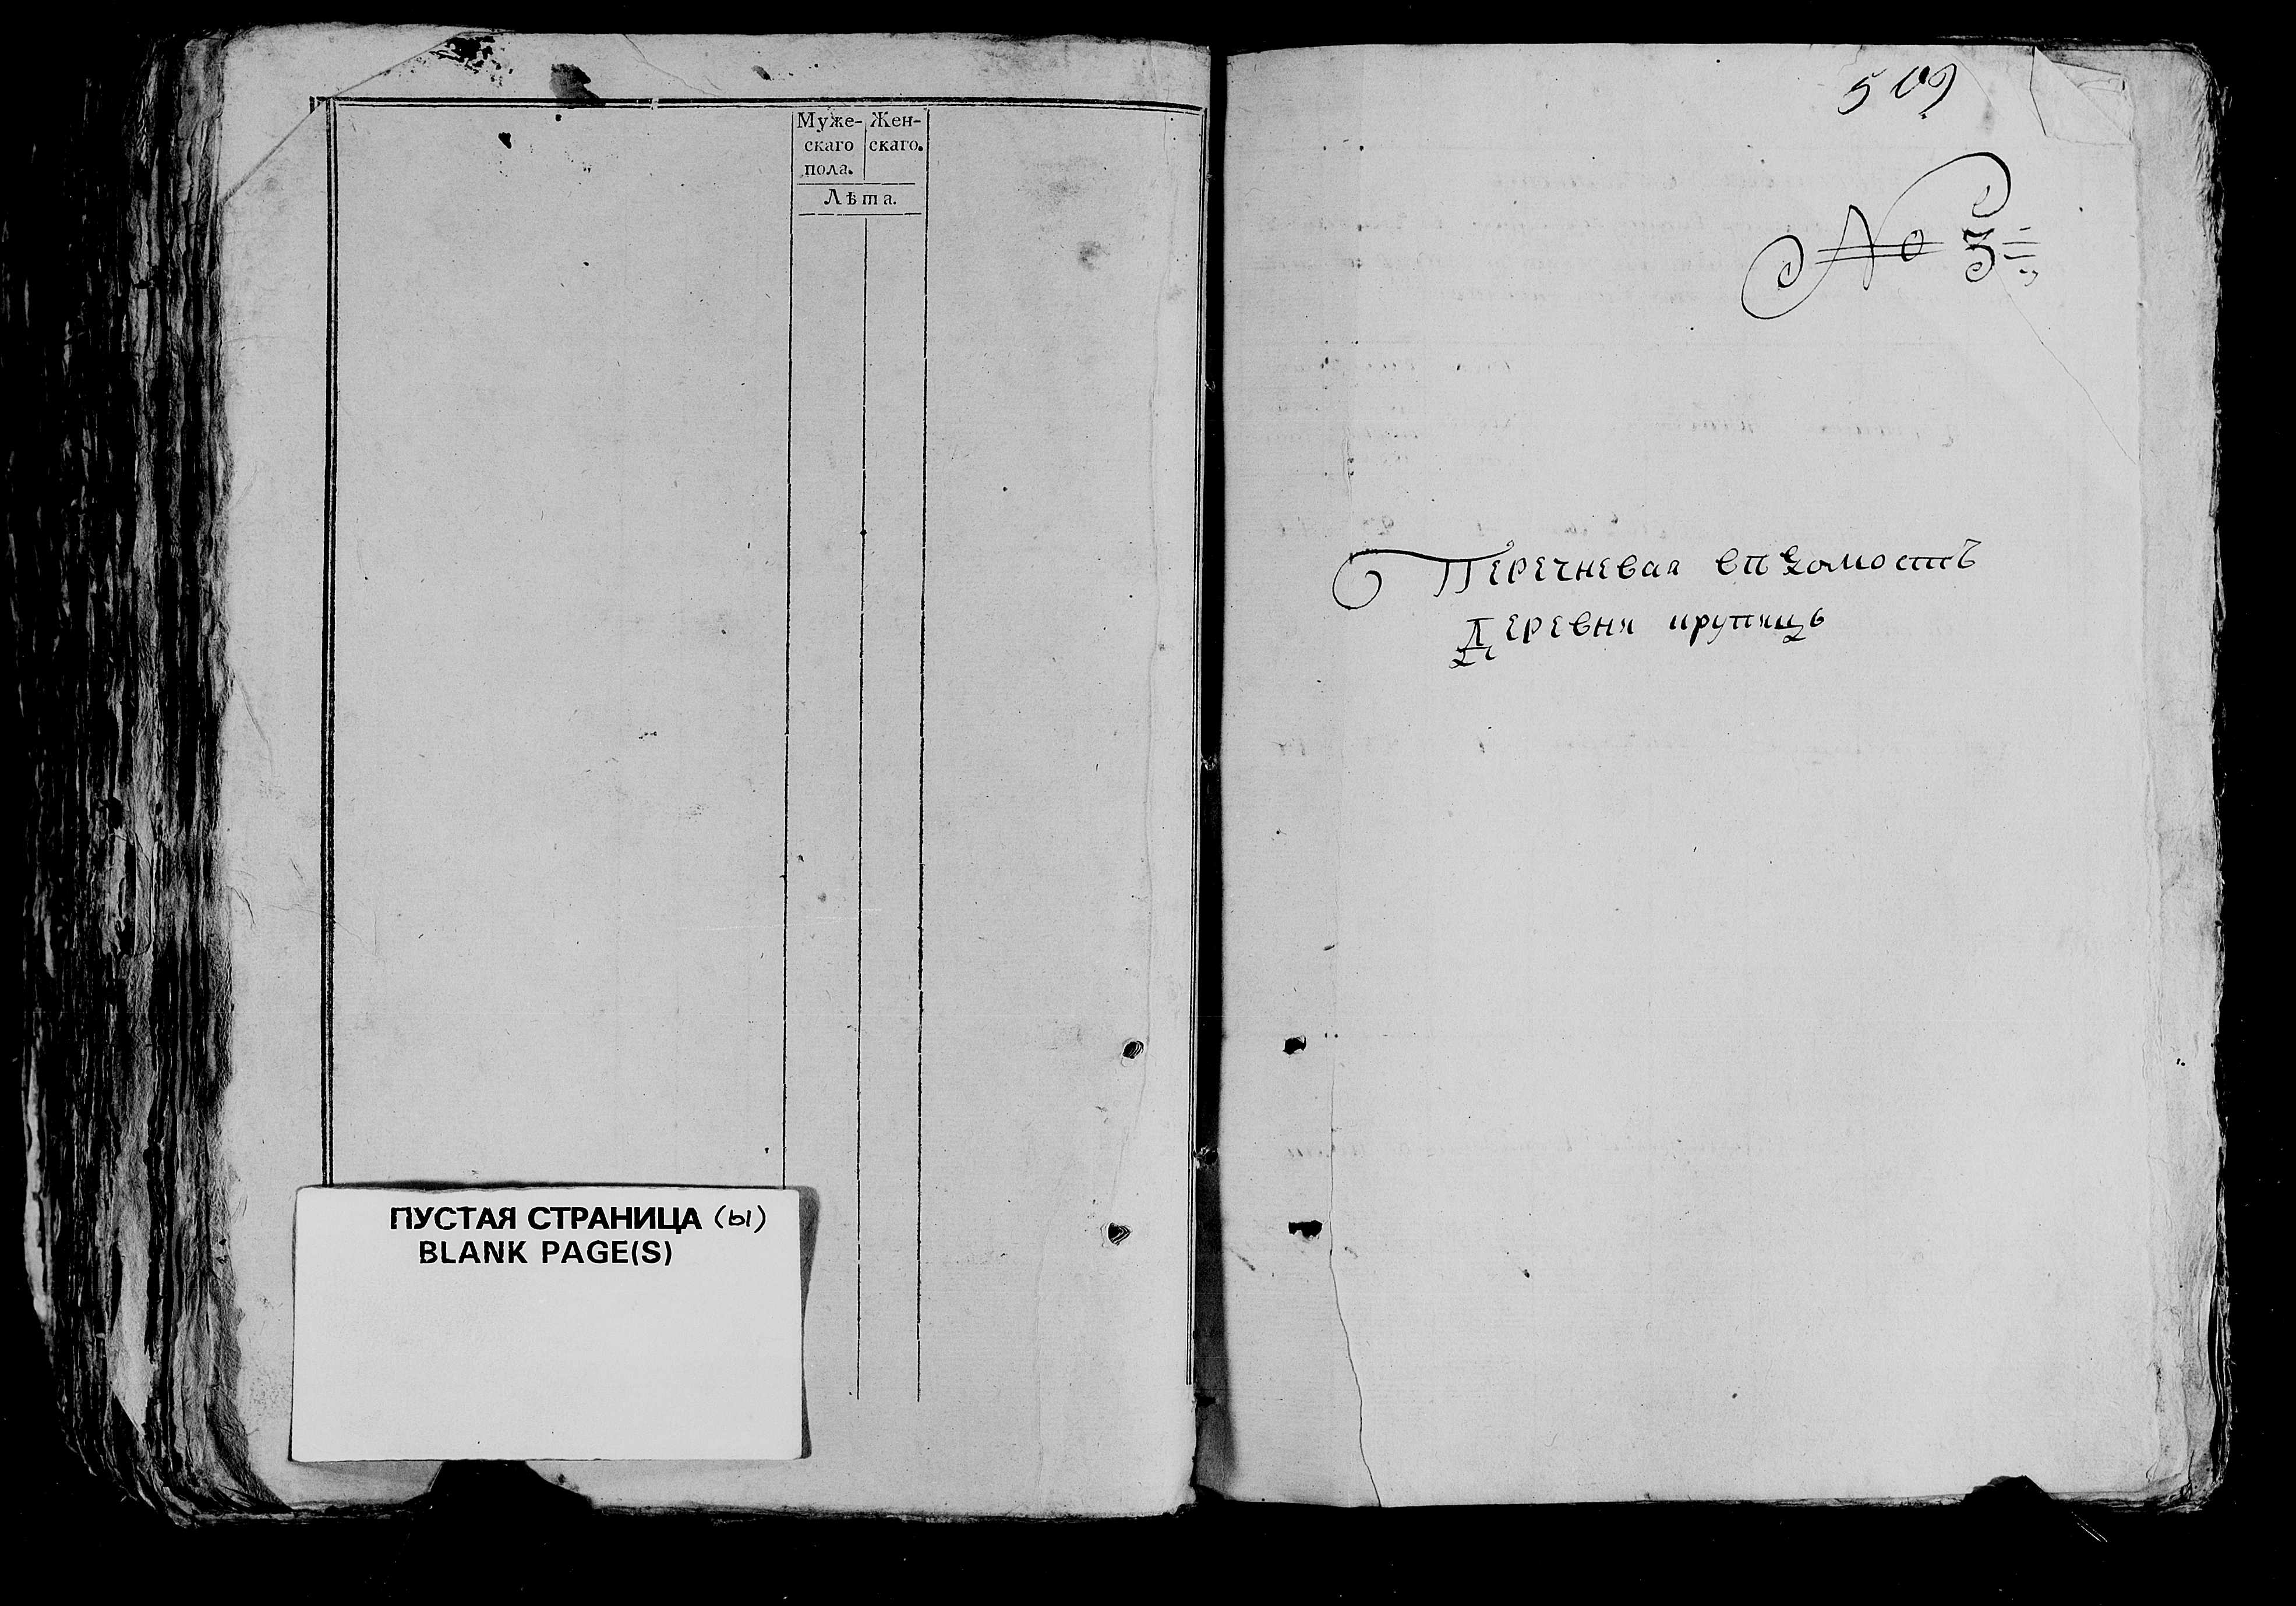 Муже-
скаго
пола.
Жен-
скаго.
Лѣта.
ПУСТАЯ СТРАНИЦА (ы)
BLANK PAGE(S)
509
No 3
Перечневая вѣдомость
Деревни крупицъ